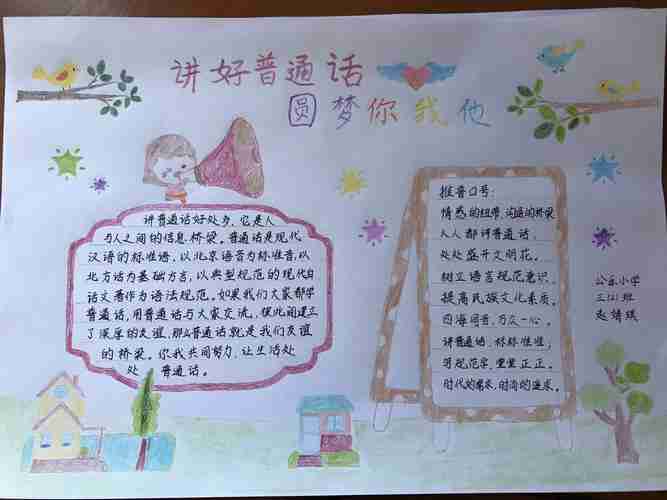 讲好普通话
圆梦你我他
讲普通话好处多,它是人
与人之间的信息桥梁。普通话是现代
汉语的标准语,以北京语音为标准音,以
北方话为基础方言,以典型规范的现代白
话文著作为语法规范。如果我们大家都学
普通话,用普通话与大家交流。彼此间建立
了深厚的友谊,那么普通话就是我们友谊
的桥梁。你我共同努力,让生活处
处普通话。
推普口号:
情感的纽带,沟通的桥梁
人人都讲普通话,
处处盛开文明花。
树立语言规范意识,
提高民族文化素质。
四海同音,万众一心。
讲普通话,标标准准;
写规范字,堂堂正正。
时代的需求,时尚的追求。
公乐小学
三(2)班
赵婧琪